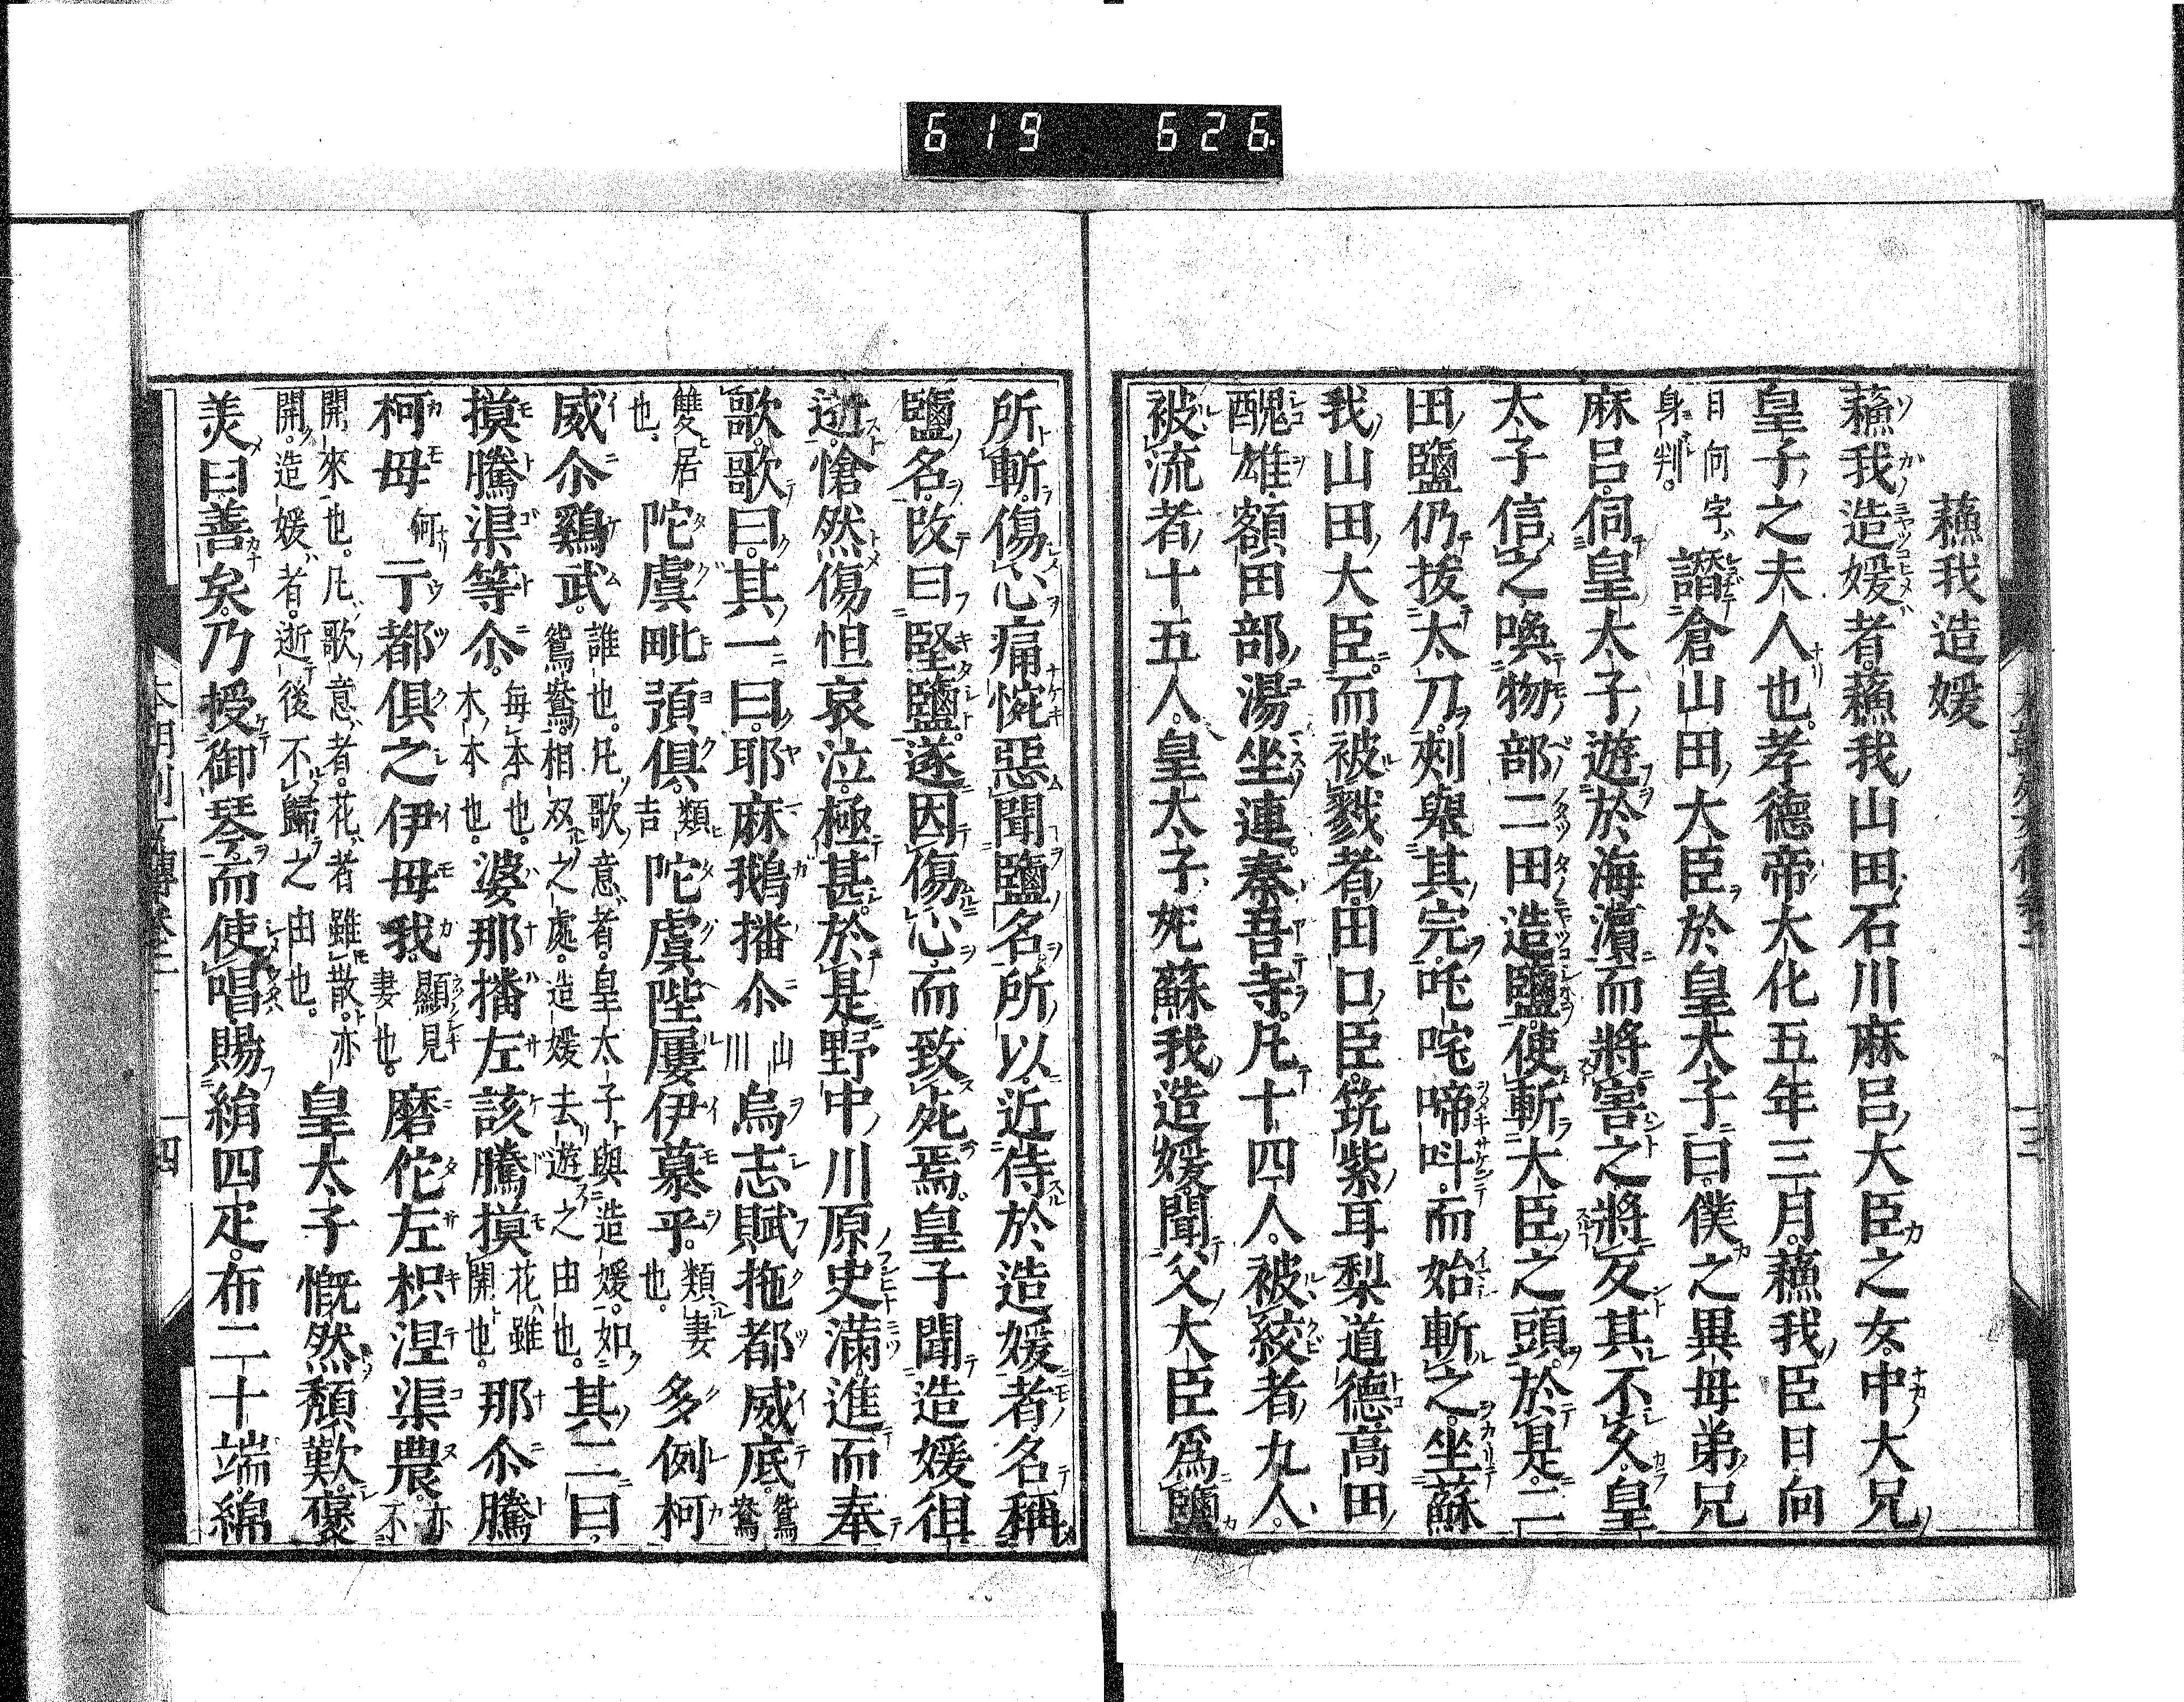 619 626
蘓我造媛
蘓我造媛者。蘓我山田石川麻呂大臣之女。中大兄
皇子之夫人也。孝德帝大化五年三月。蘓我臣日向
日向字身判。譖倉山田大臣於皇太子曰。僕之異母弟兄
麻呂。伺皇太子遊於海濱而將害之。將反其不久。皇
太子信之。喚物部二田造鹽。使斬大臣之頭。於是。二
田鹽仍拔太刀。刺舉其完。咤啼叫。而始斬之。坐蘇
我山田大臣。而被戮者。田口臣。筑紫耳梨道德。高田
醜雄。額田部湯坐連。秦吾寺。凡十四人。被絞者九人。
被流者十五人。皇太子妃蘇我造媛。聞父大臣爲鹽
所斬。傷心痛惋。惡聞鹽名。所以近侍於造媛者。名稱
鹽名。改曰堅鹽。遂因傷心。而致死焉。皇子聞造媛徂
逝。愴然傷怛哀泣極甚。於是野中川原史滿進而奉
歌。歌曰。其一曰。耶麻鵝播尒山川烏志賦拖都威底。鴛鴦
雙居也。陀虞毗預俱。類吉陀虞陛屢伊慕乎。類妻也。多例柯
威尒鷄武。誰也。凡歌意者。皇太子與造媛。如鴛鴦相双之處。造媛去遊之由也。其二曰。
摸騰渠等尒。毎本也。木本也。婆那播左該騰摸花雖開也。那尒騰
柯母何亍都俱之伊母我。顯見妻也。磨佗左枳涅渠農。亦不
開來也。凡歌意者。花者雖散。亦開。造媛者。逝後不歸之由也。皇太子慨然頹歎。襃
羙曰善矣。乃授御琴。而使唱。賜絹四疋。布二十端。綿
四